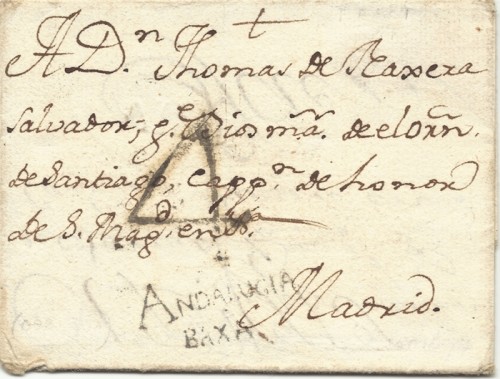 +
A Dⁿ. Thomas de
Salvador, q.ᵉ Dios m.ᵃ de el Orn.
de Santiago, capp.ⁿ de honor
de S. Mag.
A
ANDALUCIA
BAXA
Madrid.